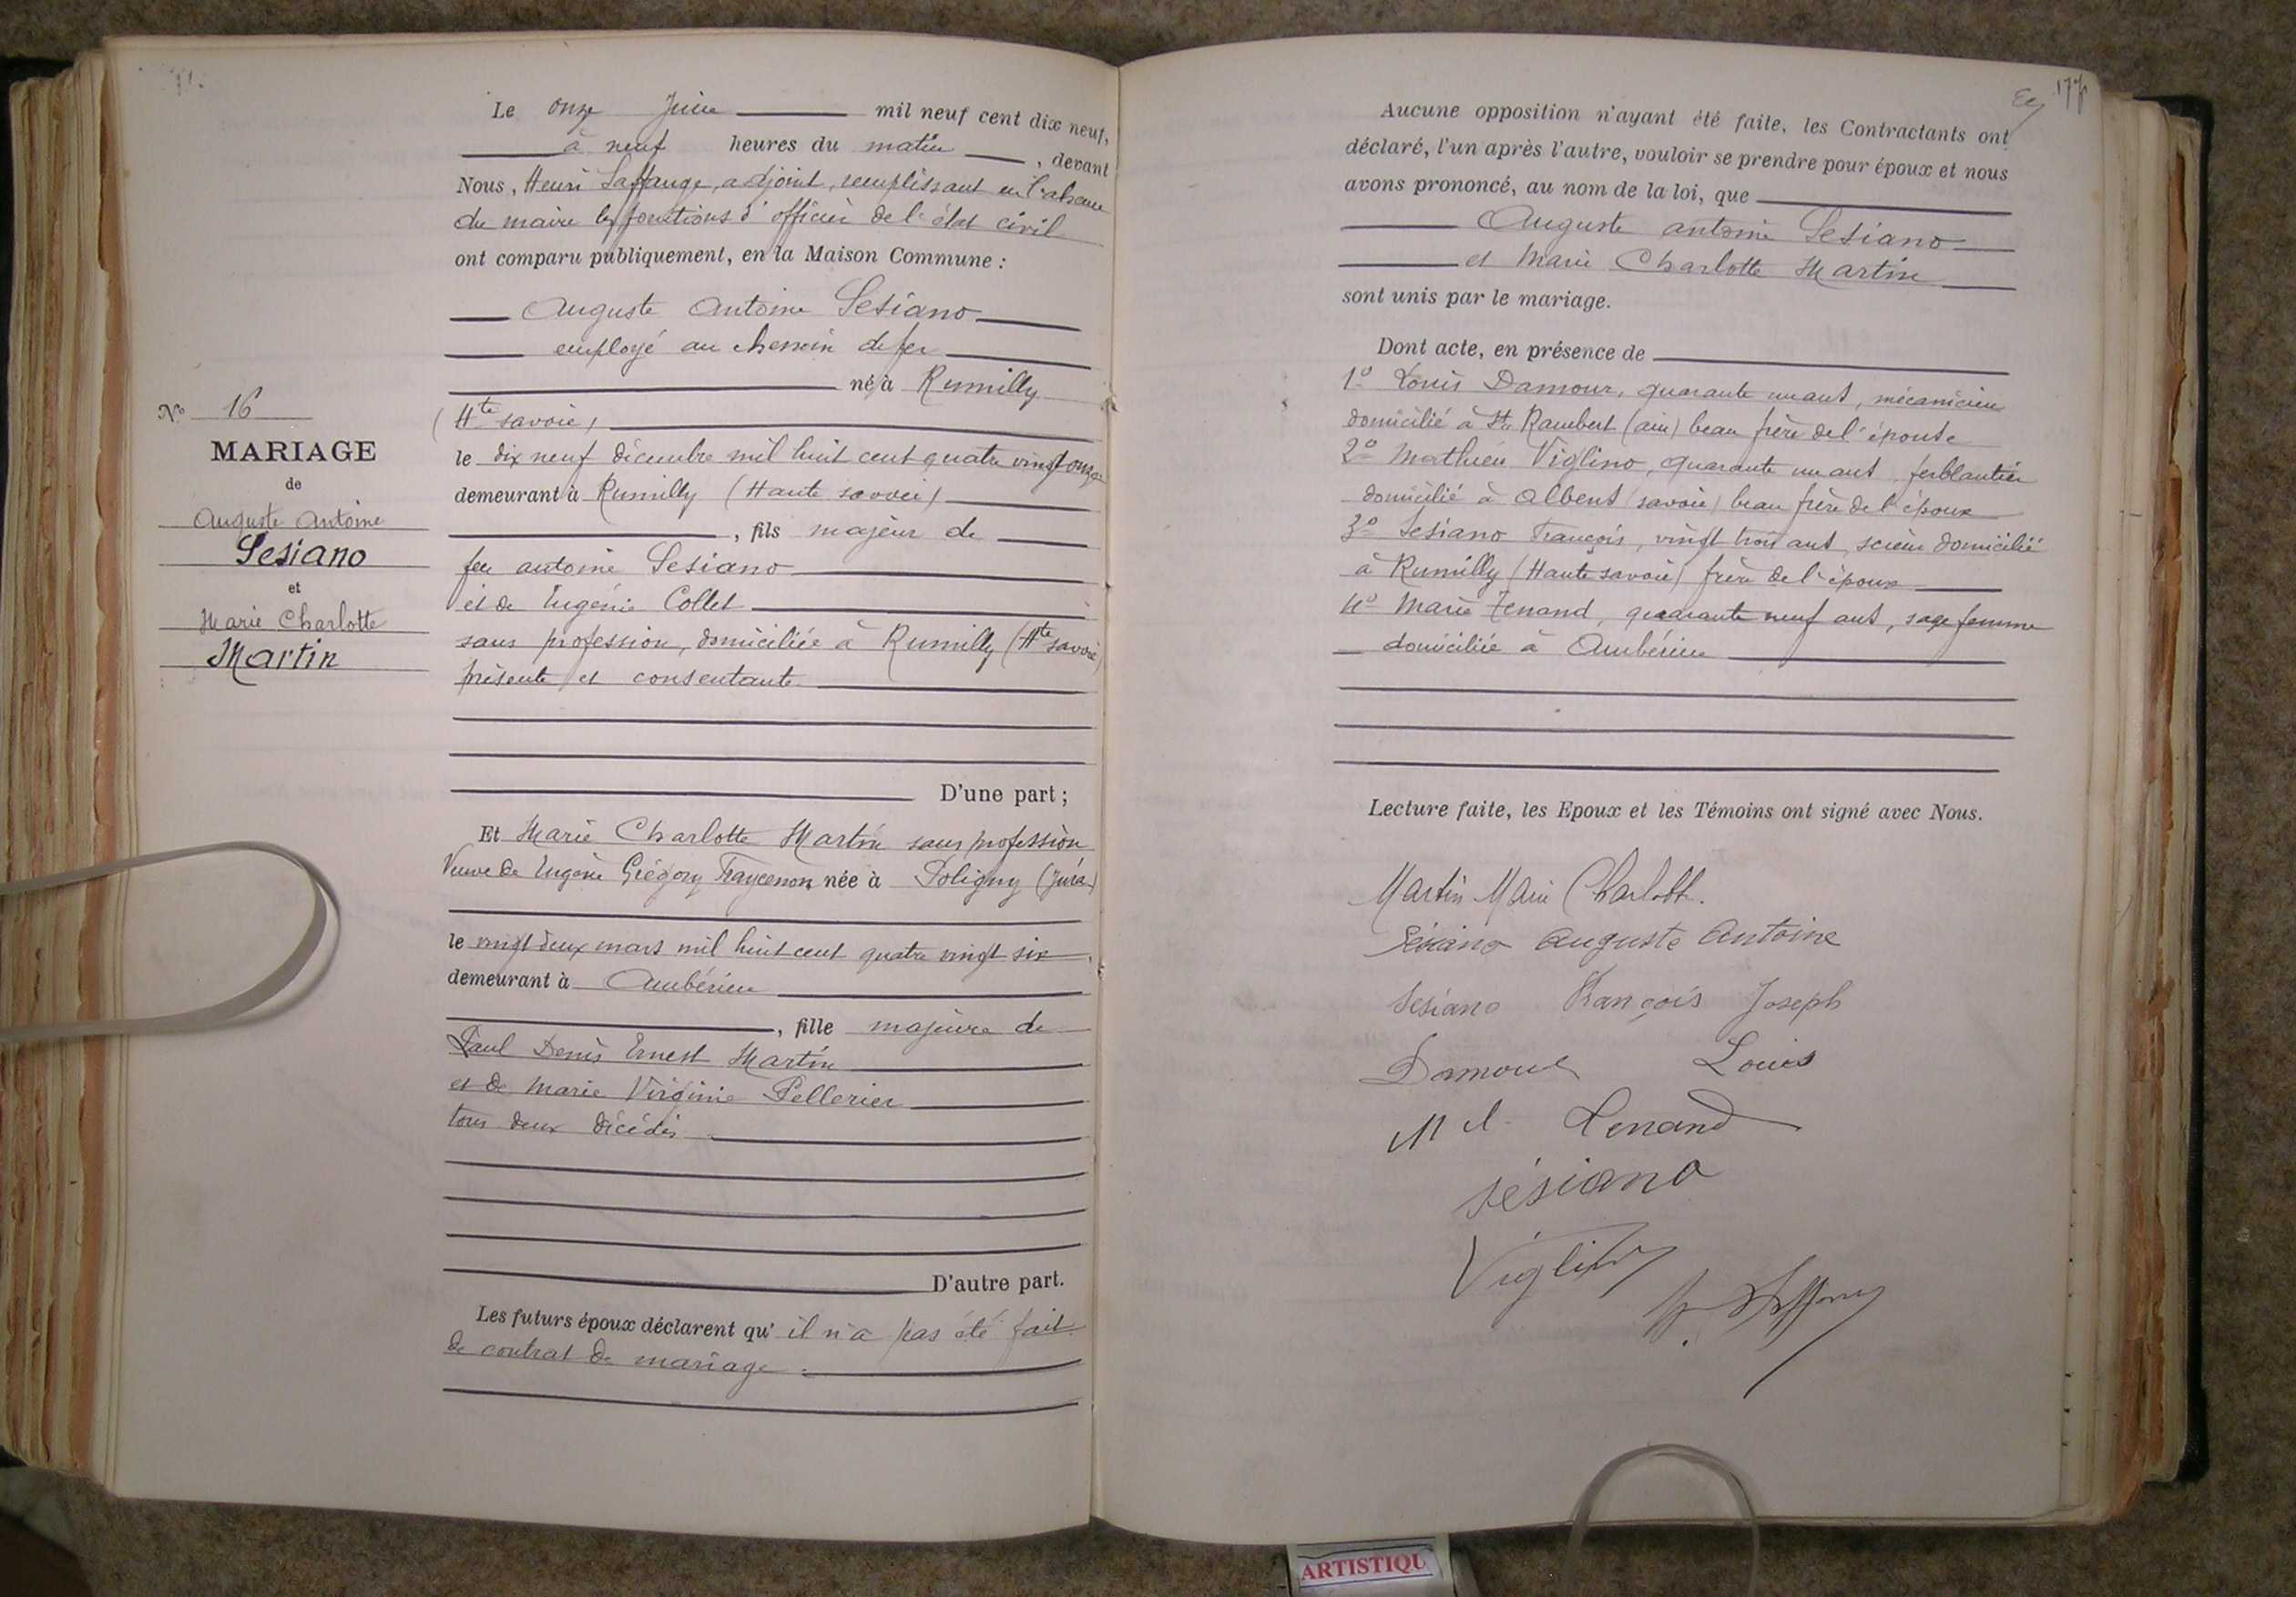 Le onze Juin mil neuf cent dix neuf,
à neuf heures du matin, devant
Nous, Henri Laffange, adjoint, remplissant en l'absence
du maire les fonctions d'officier de l'état civil
ont comparu publiquement, en la Maison Commune :
Auguste Antoine Sesiano
employé au chemin de fer
né à Rumilly
(Hte savoie)
le dix neuf décembre mil huit cent quatre vingt onze
demeurant à Rumilly (Haute savoie)
, fils majeur de
feu antoine Sesiano
et de Eugénie Collet
sans profession, domiciliée à Rumilly (Hte savoie)
présente et consentante
D'une part ;
No 16
MARIAGE
de
Auguste Antoine
Sesiano
et
Marie Charlotte
Martin
Et Marie Charlotte Martin sans profession
Veuve de Eugène Grégory née à Poligny (Jura)
le vingt deux mars mil huit cent quatre vingt six
demeurant à Ambérieu
, fille majeure de
Paul Denis Ernest Martin
et de Marie Virginie Pellerier
tous deux décédés
D'autre part.
Les futurs époux déclarent qu' il n'a pas été fait
de contrat de mariage.
177
Aucune opposition n'ayant été faite, les Contractants ont
déclaré, l'un après l'autre, vouloir se prendre pour époux et nous
avons prononcé, au nom de la loi, que
Auguste antoine Sesiano
et Marie Charlotte Martin
sont unis par le mariage.
Dont acte, en présence de
1o Louis Damour, quarante un ans, mécanicien
domicilié à St Rambert (ain) beau frère de l'épouse
2o Mathieu Viglino, quarante un ans, ferblantier
domicilié à Albens (savoie) beau frère de l'époux
3o Sesiano François, vingt trois ans, scieur domicilié
à Rumilly (Haute savoie) frère de l'époux
4o Marie Tenand, quarante neuf ans, sage femme
domiciliée à Ambérieu
Lecture faite, les Epoux et les Témoins ont signé avec Nous.
Martin Marie Charlotte.
Sésiano Auguste Antoine
Sésiano François Joseph
Damour Louis
Tenand
Sésiano
Viglino
ARTISTIQU